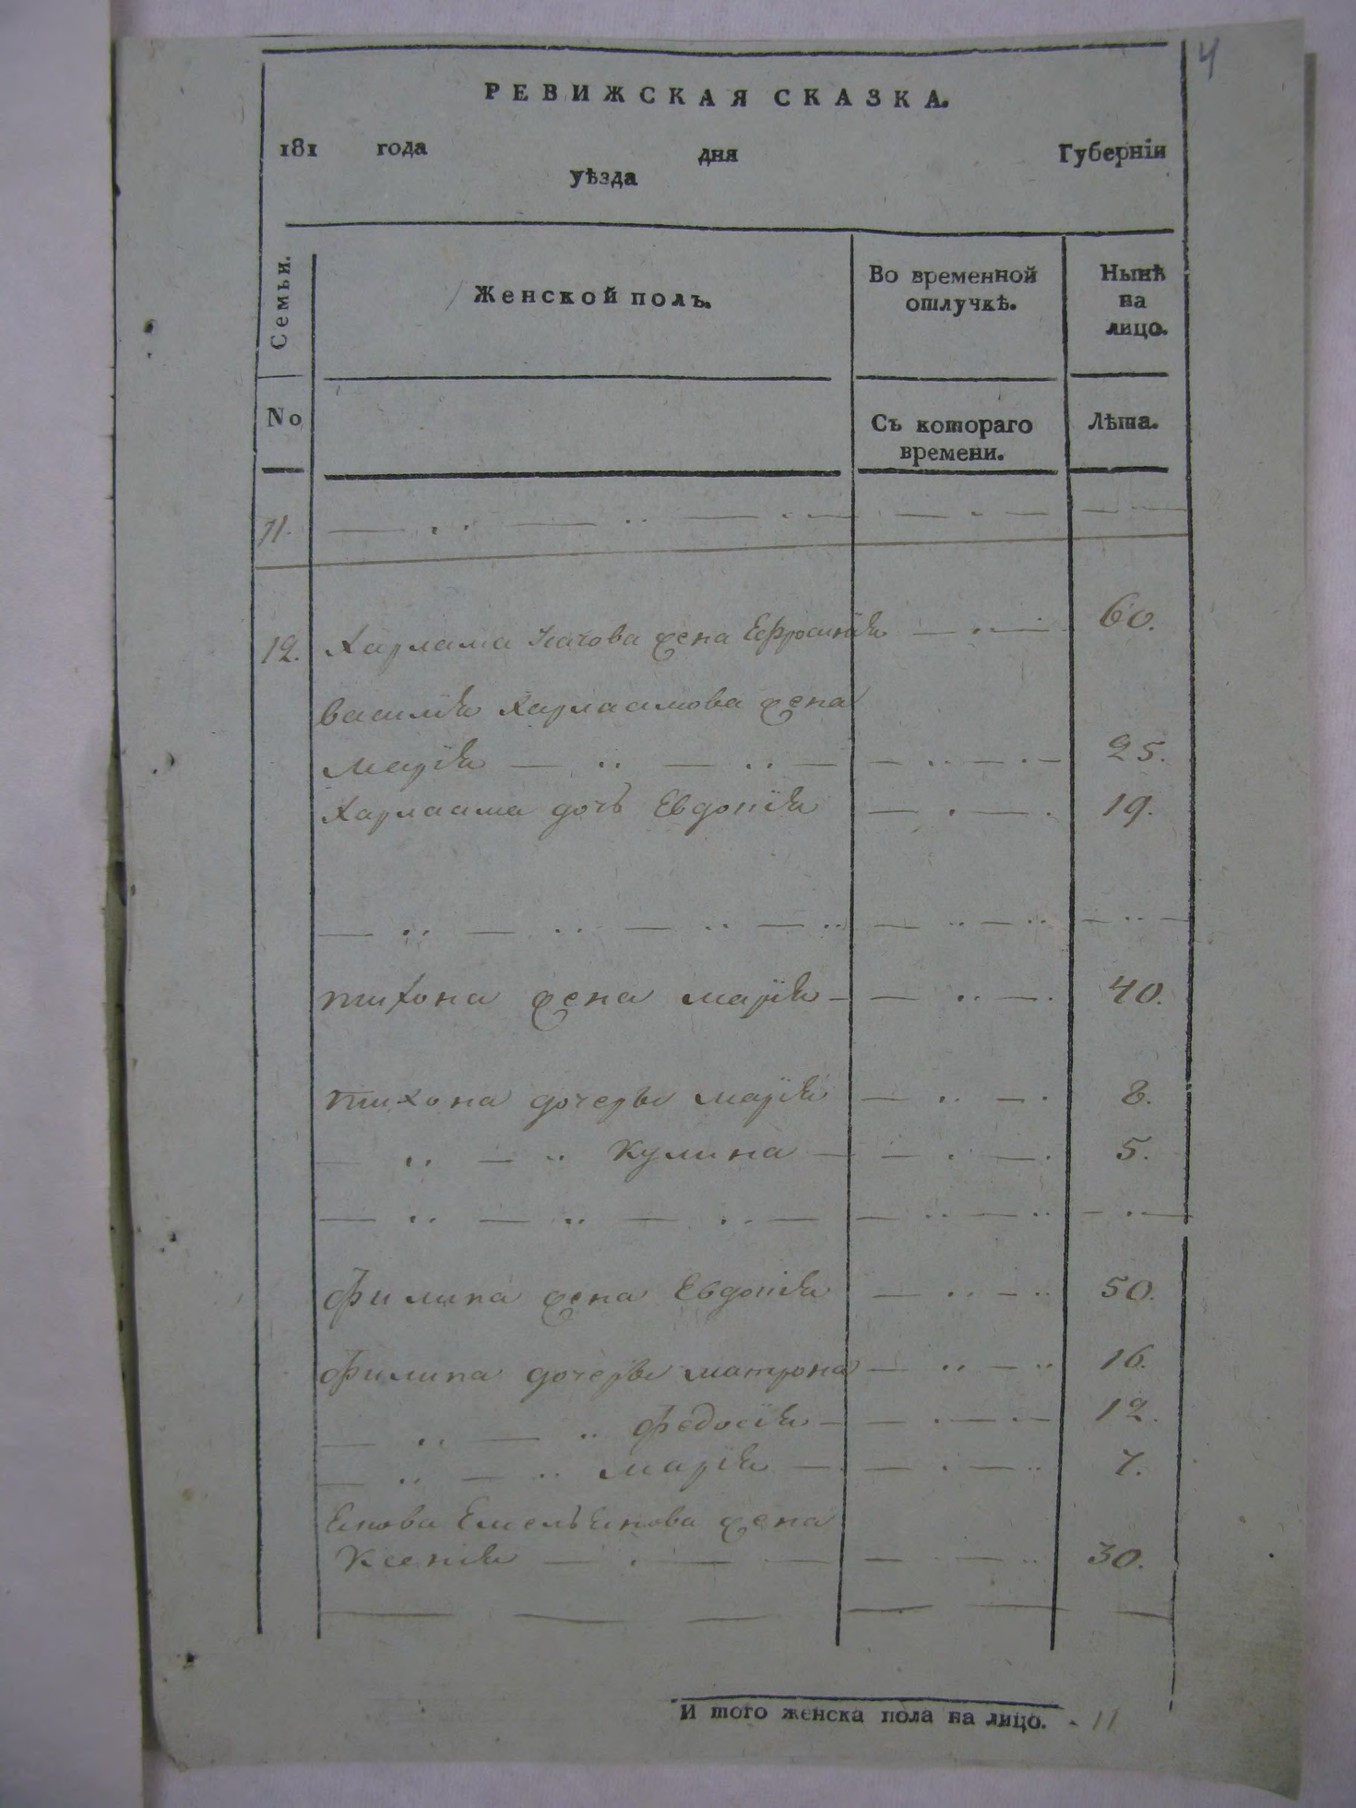 4
РЕВИЖСКАЯ СКАЗКА.
181 года дня Губернїи
уѣзда
Семьи.
Женской полъ.
Во временной отлучкѣ.
Нынѣ на лицо.
No
Съ котораго времени.
Лѣта.
11.
12. Харлама жена Ефросинїя 60.
Василїя Харлаамова жена
Марїя 25.
Харлаама дочь Евдокїя 19.
Тихона жена Марїя 40.
Тихона дочери Марїя 8.
Кулина 5.
Филипа жена Евдокїя 50.
Филипа дочери Матрона 16.
Федосїя 12.
Марїя 7.
Якова Емельянова жена
Ксенїя 30.
И того женска пола на лицо. 11